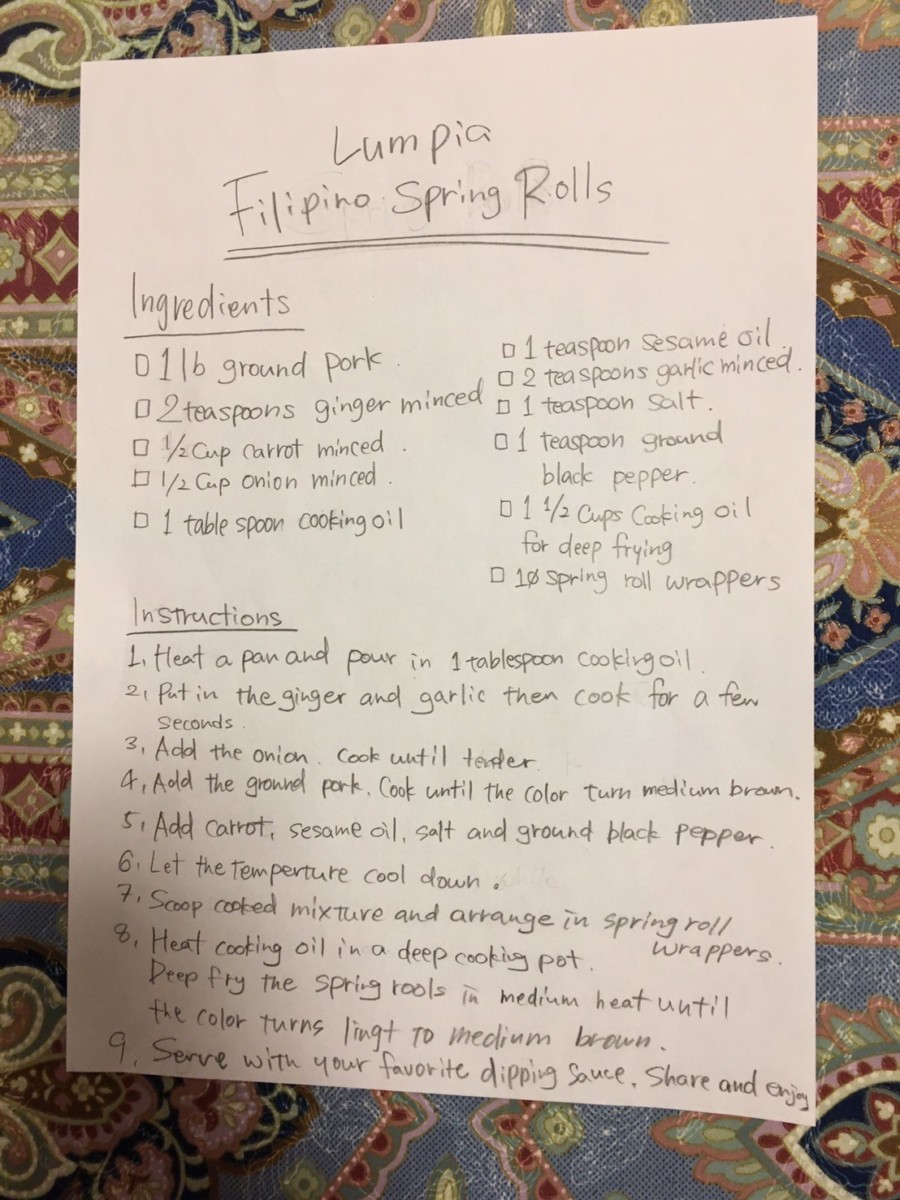 Lumpia
Filipino Spring Rolls
Ingredients
□ 1 lb ground pork.
□ 2 teaspoons ginger minced
□ 1/2 Cup carrot minced.
□ 1/2 Cup onion minced.
□ 1 table spoon cooking oil
□ 1 teaspoon sesame oil.
□ 2 teaspoons garlic minced.
□ 1 teaspoon salt.
□ 1 teaspoon ground
black pepper.
□ 1 1/2 Cups Cooking oil
for deep frying
□ 10 spring roll wrappers
Instructions
1, Heat a pan and pour in 1 tablespoon cooking oil.
2, Put in the ginger and garlic then cook for a few
seconds.
3, Add the onion. Cook until tender.
4, Add the ground pork. Cook until the color turn medium brown.
5, Add carrot, sesame oil, salt and ground black pepper.
6, Let the temperture cool down.
7, Scoop cooked mixture and arrange in spring roll
wrappers.
8, Heat cooking oil in a deep cooking pot.
Deep fry the spring rools in medium heat until
the color turns lingt to medium brown.
9, Serve with your favorite dipping sauce. Share and enjoy